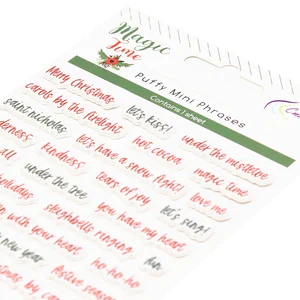 Magic
Time
Puffy Mini Phrases
Contains 1 sheet
Merry Christmas
let's kiss!
under the mistletoe
carols by the firelight
hot cocoa
magic time
saint nicholas
let's have a snow fight!
love me
kindness
tears of joy
let's sing!
all
under the tree
sleighbells ringing
fun
holidays
with your heart
ho-ho-ho
new year
festive season